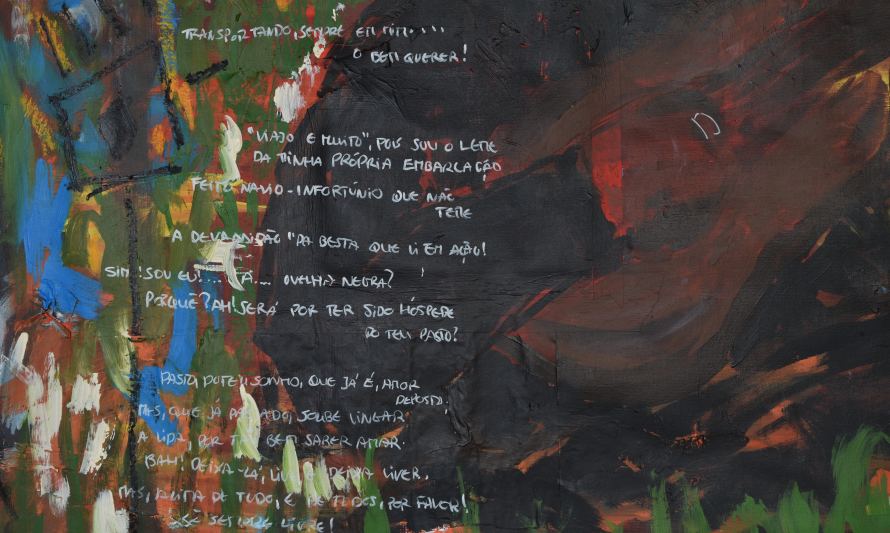 TRANSPORTANDO, SEMPRE EM MIM....
O BEM QUERER!
"VIAJO E MUITO", POIS SOU O LEME
DA MINHA PRÓPRIA EMBARCAÇÃO
FEITO NAVIO-INFORTÚNIO QUE NÃO
TEME
A DEVASSIDÃO "DA BESTA QUE LI EM AÇÃO!
SIM! SOU EU!... A... OVELHA NEGRA?
PORQUÊ? AH! SERÁ POR TER SIDO HÓSPEDE
DO TEU PASTO?
PASTO, SONHO, QUE JÁ É, AMOR
DEPOSTO.
MAS, QUE JÁ PASSADO, SOUBE VINGAR
A VIDA, POR TÃO BEM SABER AMAR.
BAH! DEIXA-LÁ, DEIXA VIVER.
MAS, DE TUDO, E DE TODOS, POR FAVOR!
SÊ SEMPRE LIVRE!